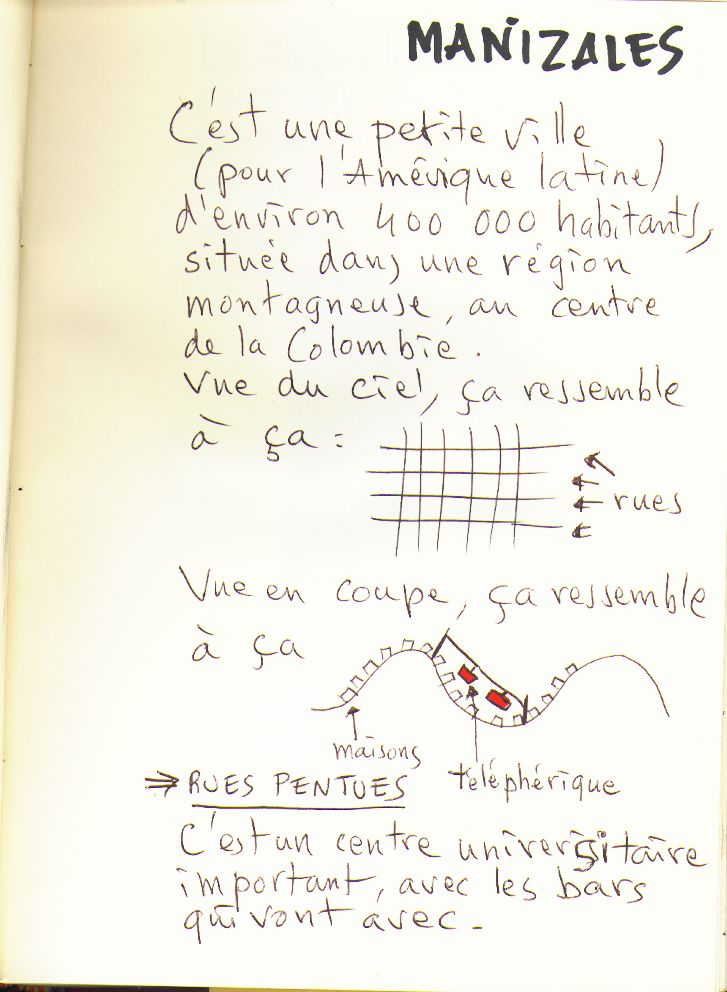 MANIZALES
C'est une petite ville
(pour l'Amérique latine)
d'environ 400 000 habitants,
située dans une région
montagneuse, au centre
de la Colombie.
Vue du ciel, ça ressemble
à ça :
rues
Vue en coupe, ça ressemble
à ça
maisons
téléphérique
⇒ RUES PENTUES
C'est un centre universitaire
important, avec les bars
qui vont avec.